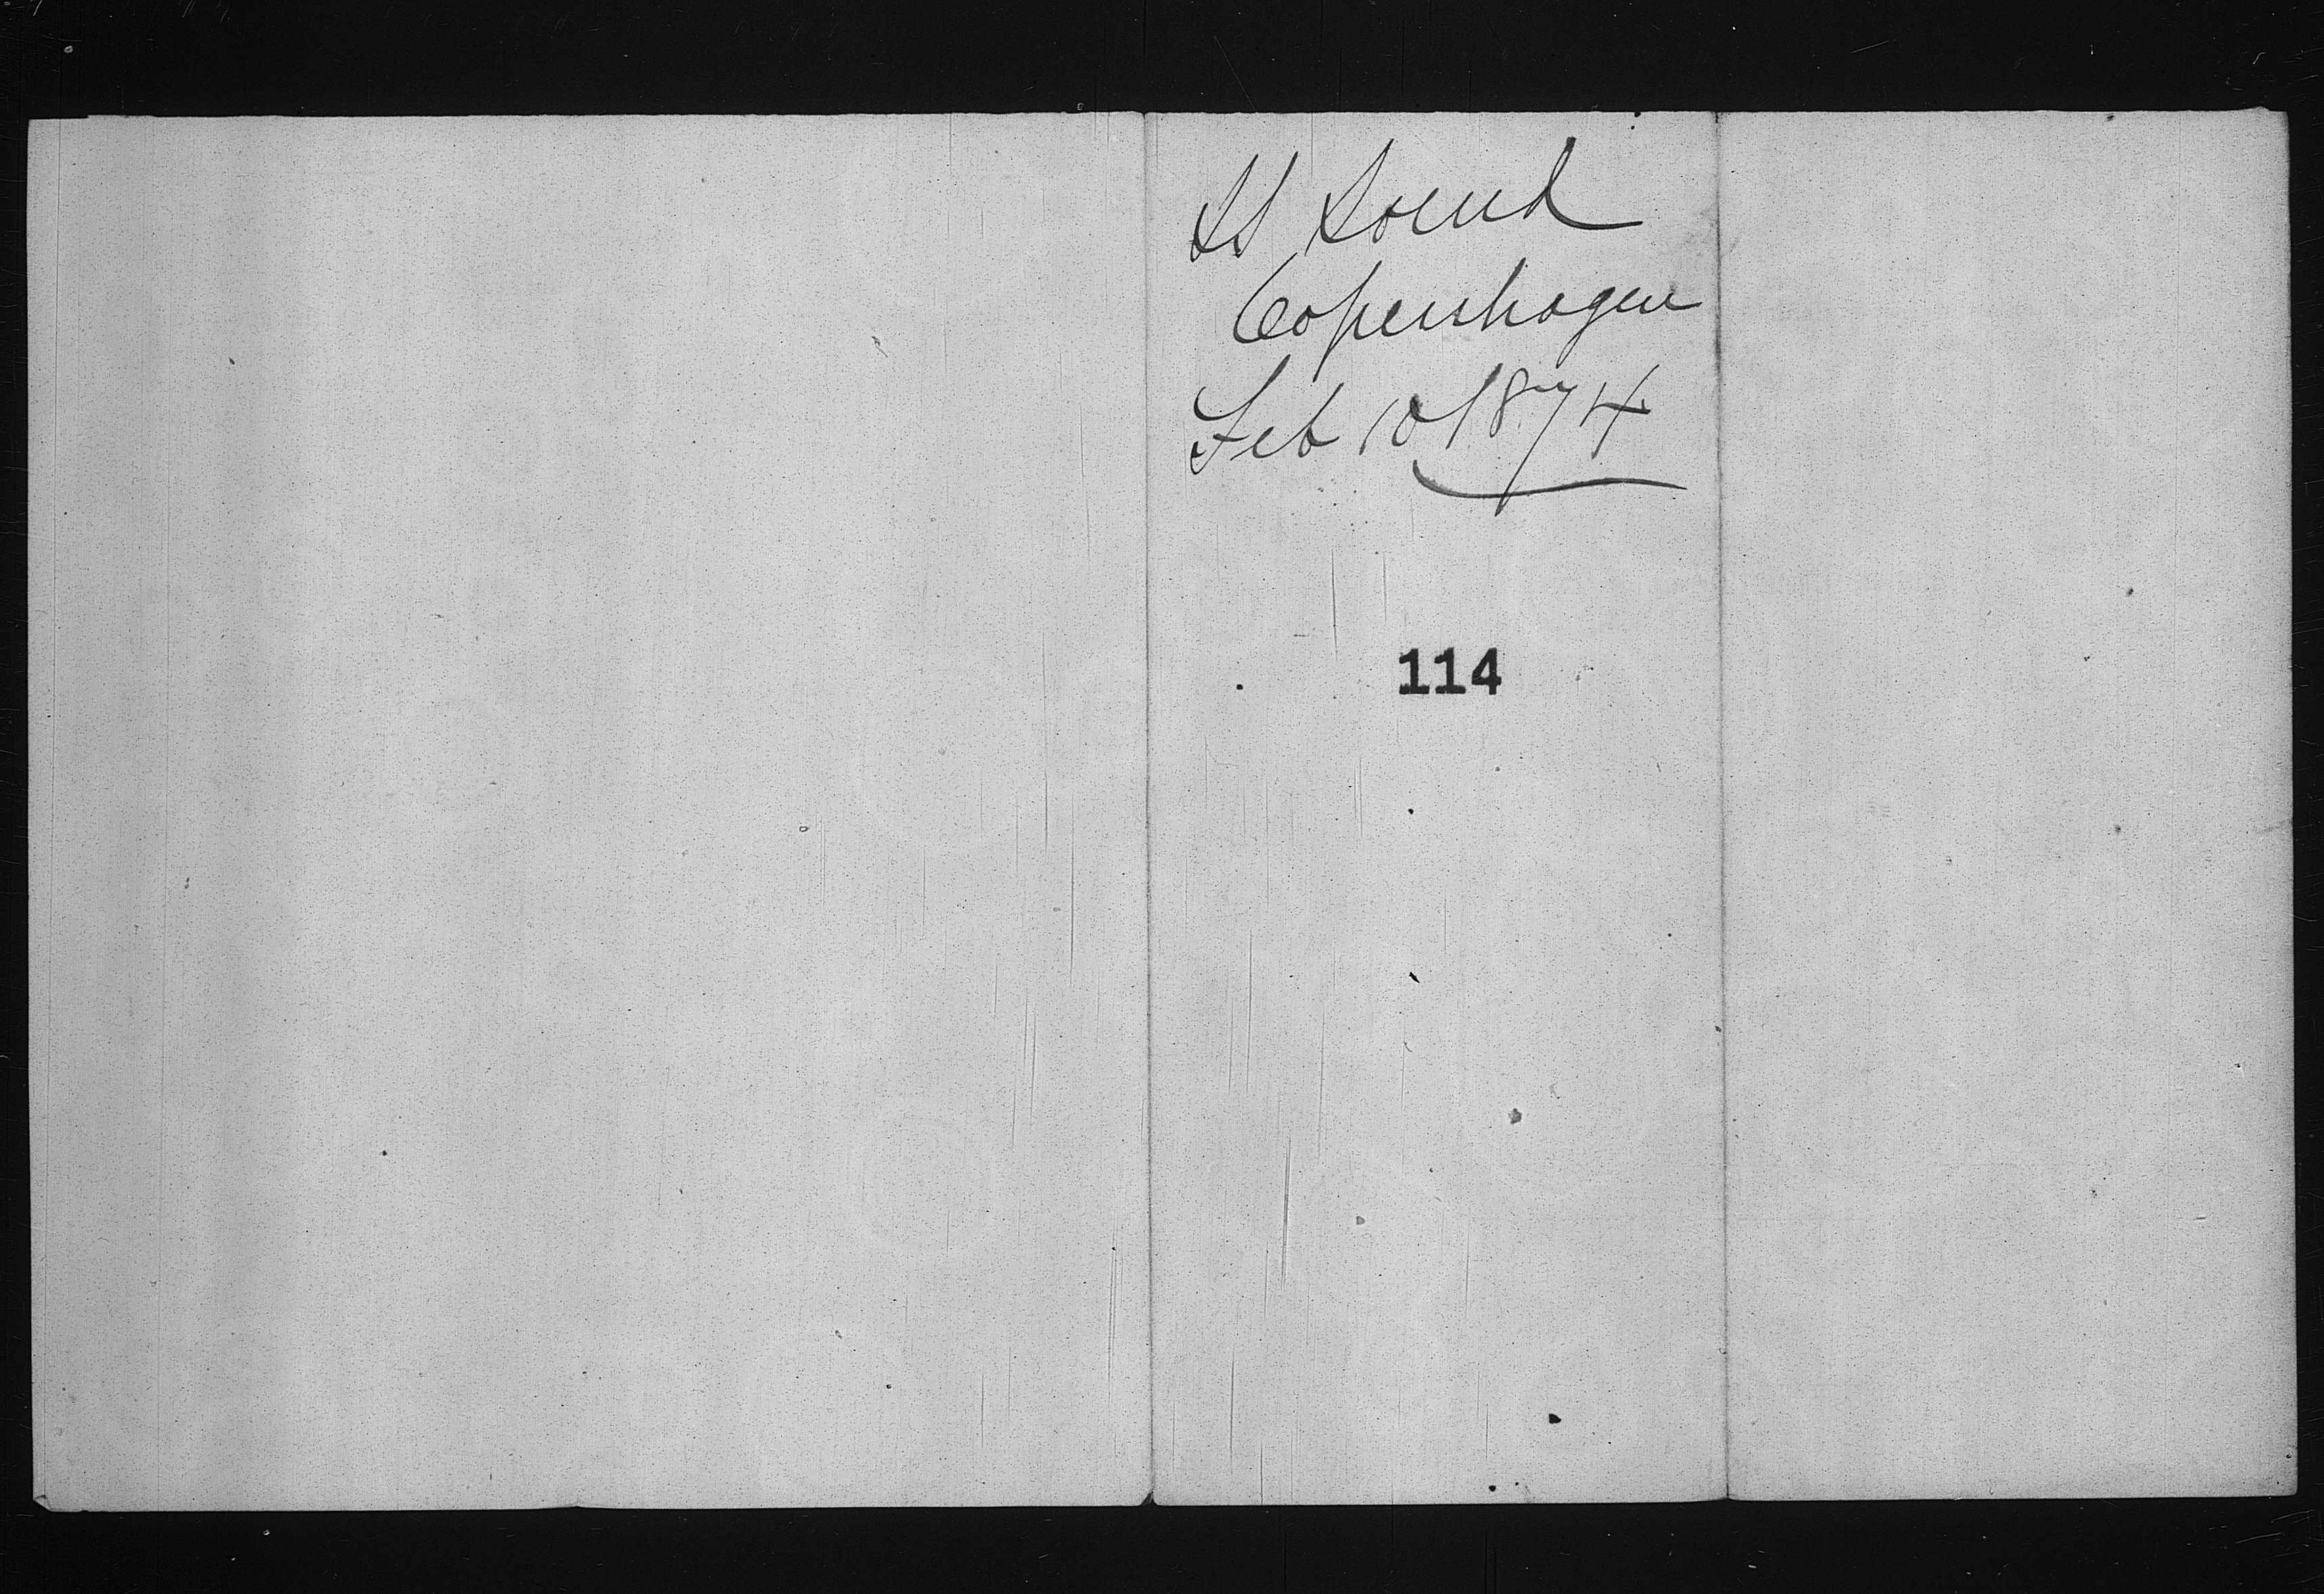 Copenhagen
Feb 10 1874
114